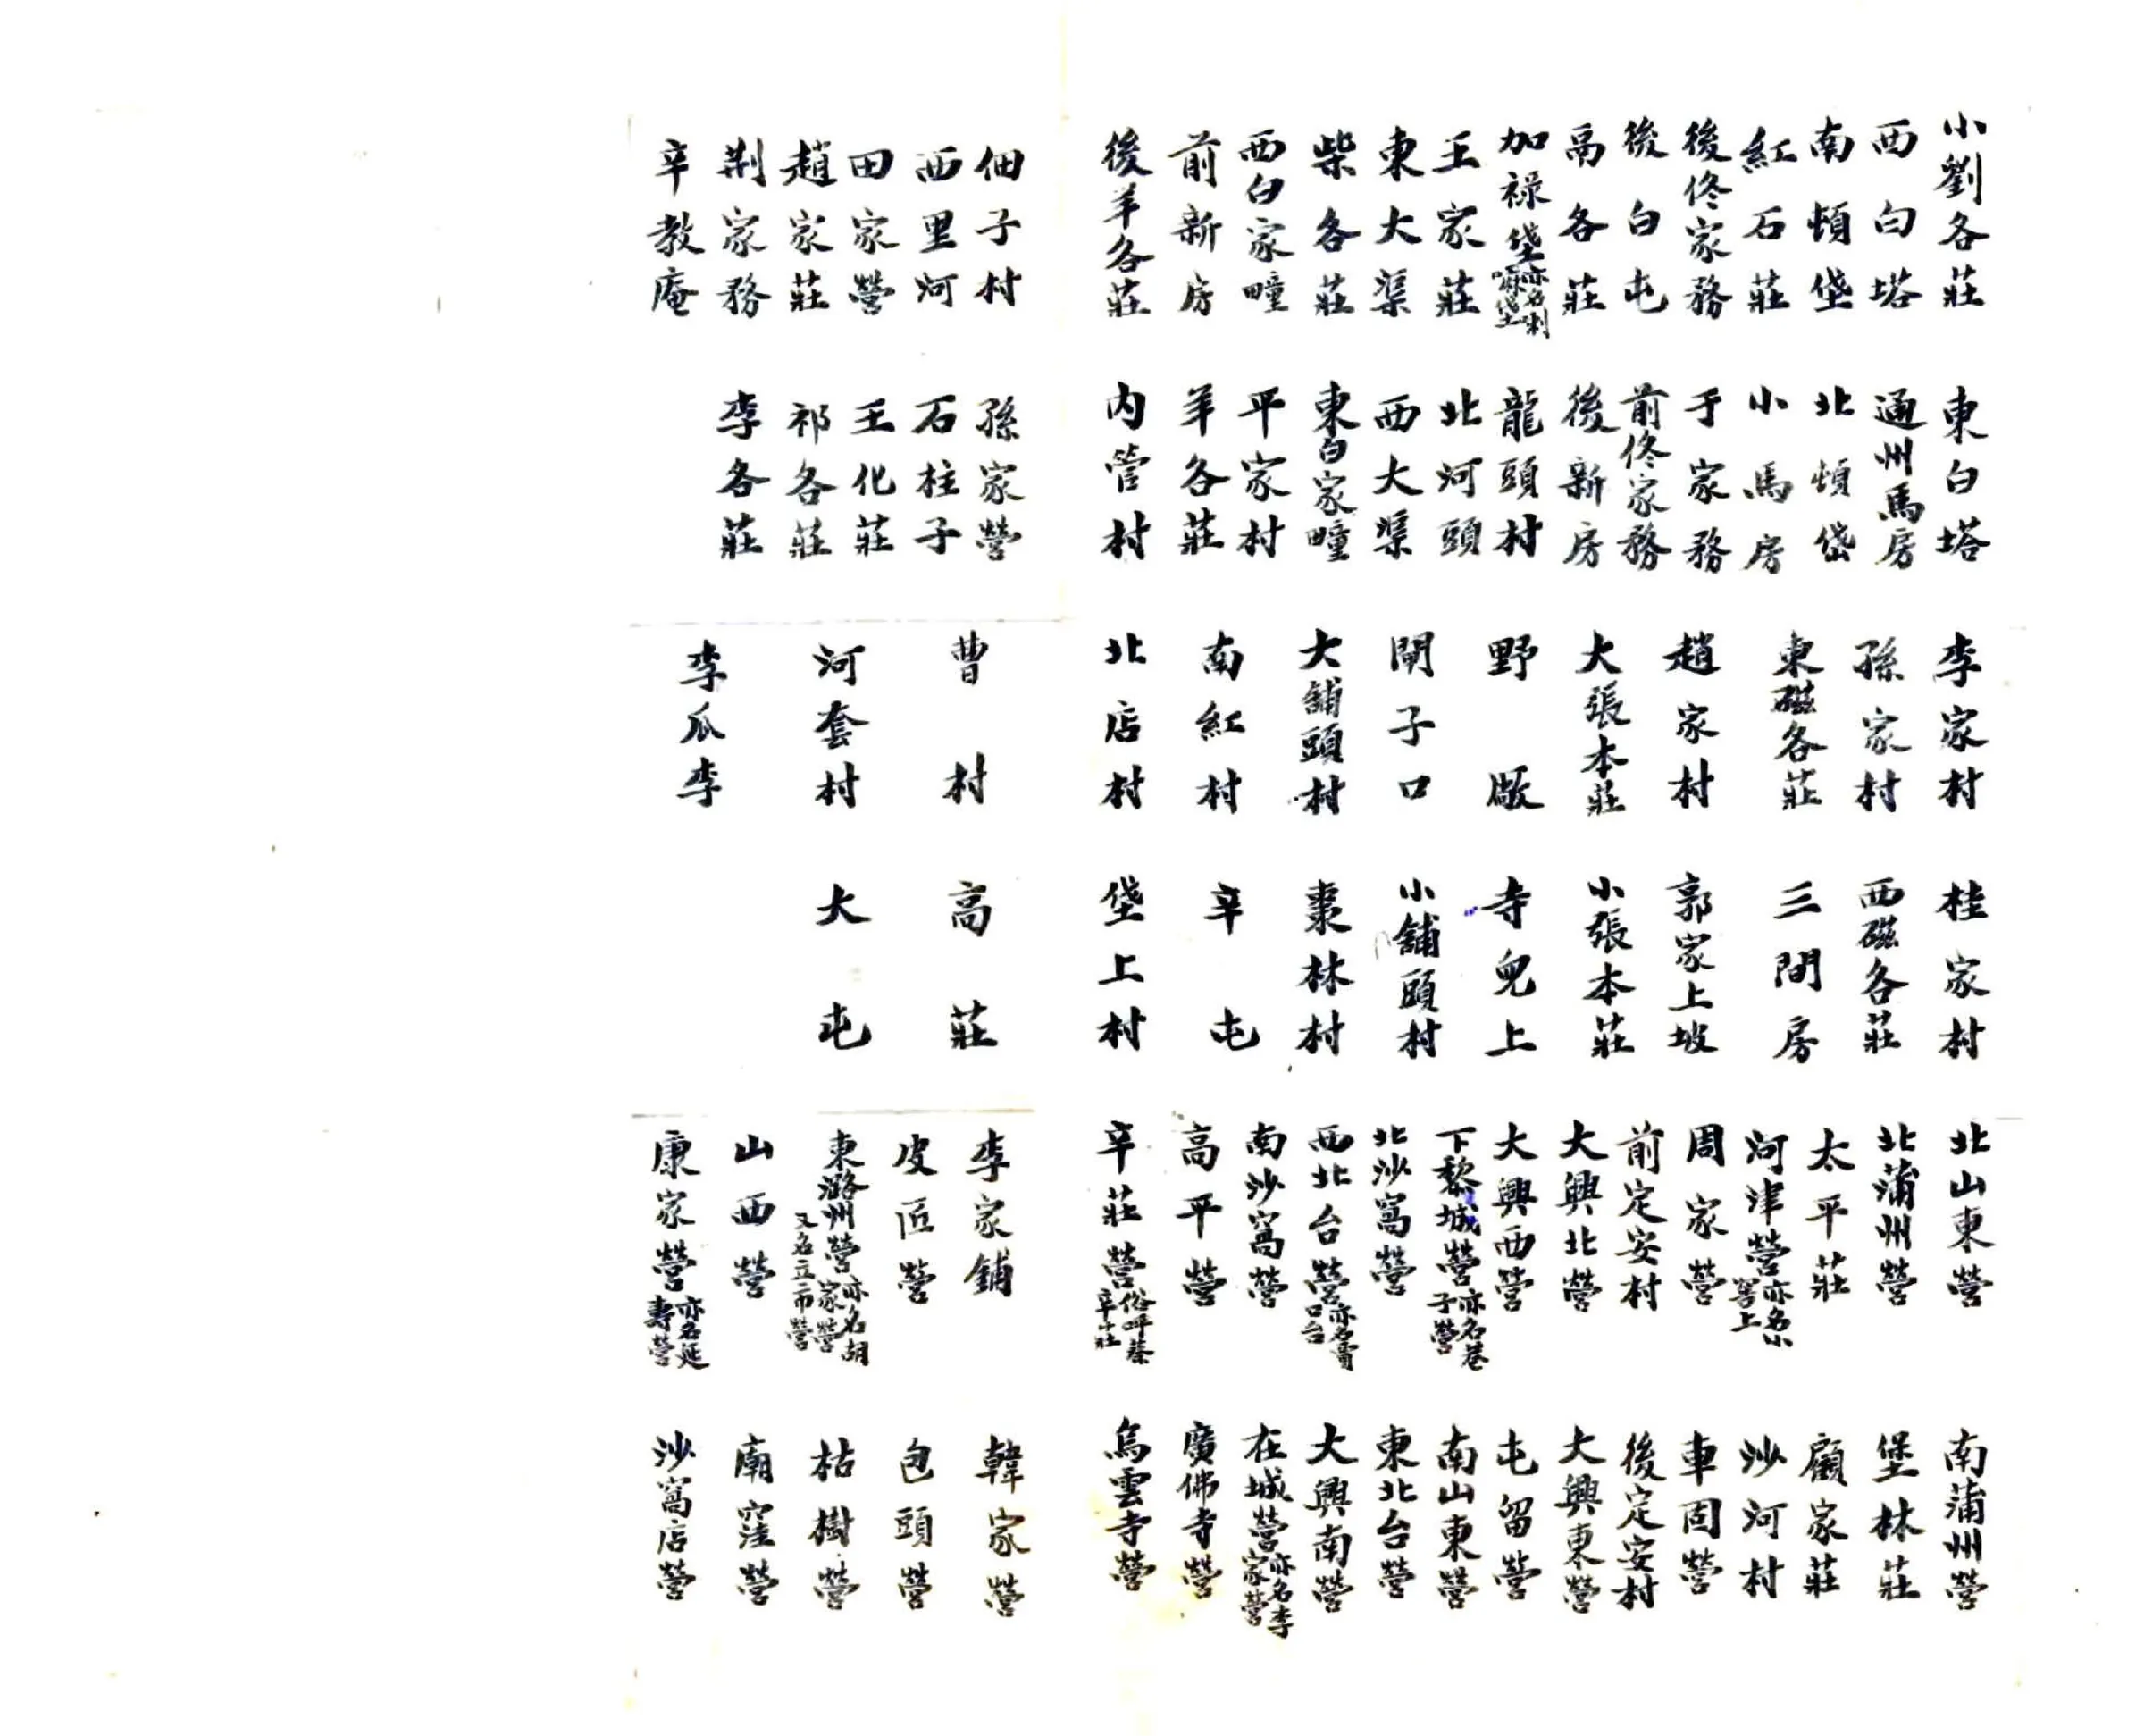 小劉各莊
西白塔
南頓垡
紅石莊
後佟家務
後白屯
鬲各莊
加祿垡亦名喇嘛垡
王家莊
東大渠
柴各莊
西白家疃
前新房
後羊各莊
佃子村
西里河
田家營
趙家莊
荆家務
辛教庵
東白塔
通州馬房
北頓垡
小馬房
于家務
前佟家務
後新房
龍頭村
北河頭
西大渠
東白家疃
平家村
羊各莊
内管村
孫家營
石柱子
王化莊
祁各莊
李各莊
李家村
孫家村
東磁各莊
趙家村
大張本莊
野厰
閘子口
大舖頭村
南紅村
北店村
曹村
河套村
李瓜李
桂家村
西磁各莊
三間房
郭家上坡
小張本莊
寺兒上
小舖頭村
棗林村
辛屯
垡上村
高莊
大屯
北山東營
北蒲州營
太平莊
河津營亦名小營上
周家營
前定安村
大興北營
大興西營
下黎城營亦名巷子營
北沙窩營
西北台營亦名霄口台
南沙窩營
高平營
辛莊營俗呼蔡辛莊
李家鋪
皮匠營
東潞州營亦名胡家營
又名立市營
山西營
康家營亦名延壽營
南蒲州營
堡林莊
顧家莊
沙河村
車固營
後定安村
大興東營
屯留營
南山東營
東北台營
大興南營
在城營亦名李家營
廣佛寺營
烏雲寺營
韓家營
包頭營
枯樹營
廟窪營
沙窩店營